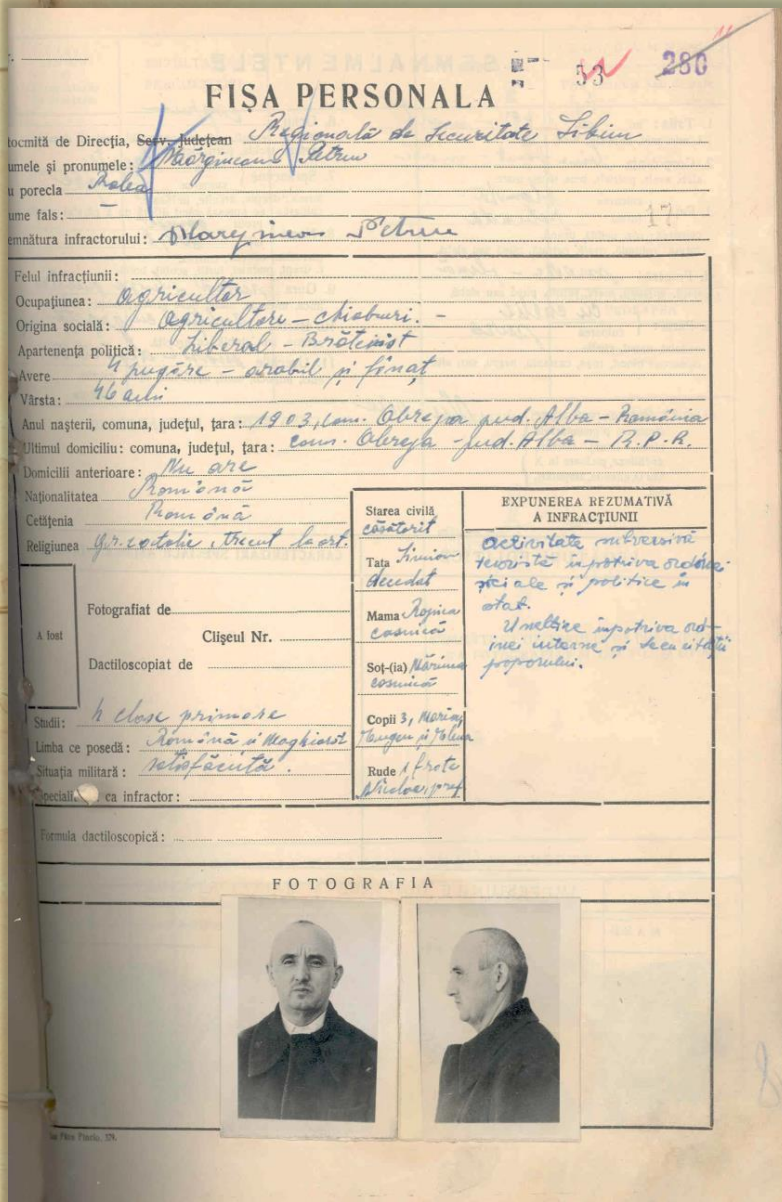 53 280
FIȘA PERSONALA
tocmită de Direcția, Serv. Județean Regionala de Securitate Sibiu
umele și pronumele: Mărgineanu Petru
u porecla
ume fals: —
17
emnătura infractorului: Margineau Petru
Felul infracțiunii:
Ocupațiunea: agricultor
Origina socială: agricultori – chiaburi. –
Apartenența politică: Liberal – Brătienist
Avere 4 jugăre – arabil și fînaț
Vârsta: 46 ani
Anul nașterii, comuna, județul, țara: 1903, com. Obreja jud. Alba – România
Ultimul domiciliu: comuna, județul, țara: com. Obreja – jud. Alba – R.P.R.
Domicilii anterioare: Nu are
Naționalitatea Română
Cetățenia Română
Religiunea gr. catolic, trecut la ort.
A fost
Fotografiat de
Clișeul Nr.
Dactiloscopiat de
Studii: 4 clase primare
Limba ce posedă: Română și Maghiară
Situația militară: satisfăcută.
ca infractor:
Starea civilă
căsătorit
Tata Simion
decedat
Mama
casnică
Soț-(ia) Mărina
casnică
Copii 3,
Rude 1 frate
EXPUNEREA REZUMATIVĂ
A INFRACȚIUNII
activitate subversivă
teroristă împotriva ordinei
sociale și politice în
stat.
Uneltire împotriva ord-
inei interne și securității
poporului.
Formula dactiloscopică:
FOTOGRAFIA
8